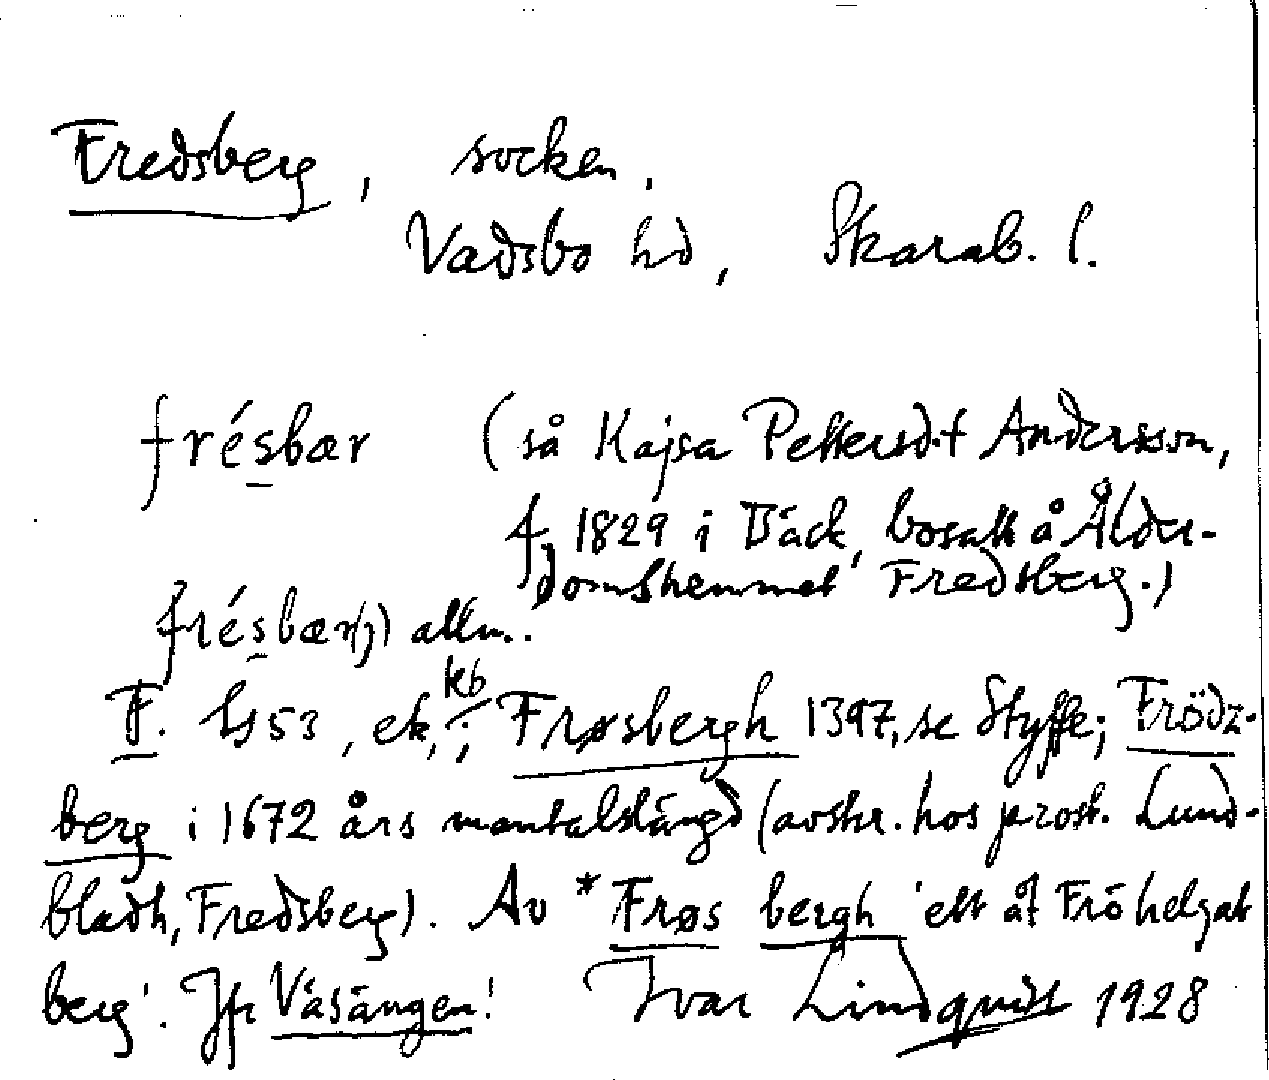 Fredsberg, socken,
Vadsbo hd, Skarab. l.
frésbær (så Kajsa Pettersd:t Andersson,
f. 1829 i Bäck, bosatt å Ålder-
domshemmet, Fredsberg.)
frésbær(j) allm..
F. 1453, ek, kb; Frøsbergh 1397, se Styffe; Frödz-
berg i 1672 års mantalslängd (avskr. hos prost. Lund-
bladh, Fredsberg). Av *Frøs bergh 'ett åt Frö helgat
berg'. Jfr Väsängen! Ivar Lindquist 1928